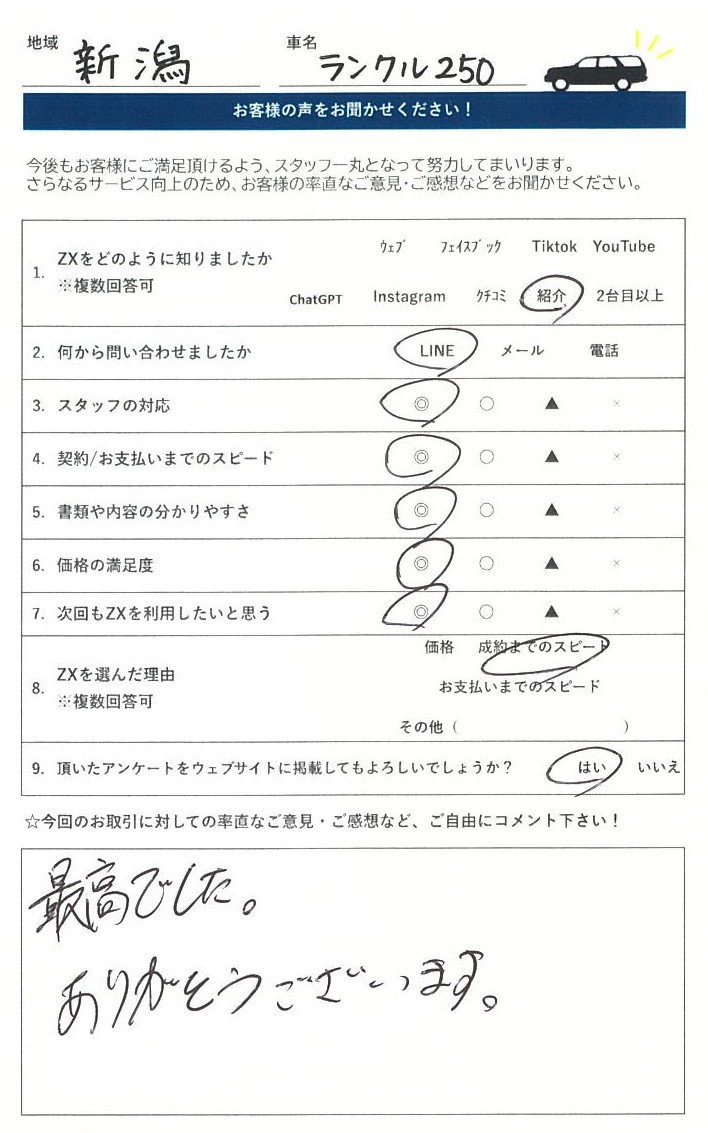 地域 新潟 車名 ランクル250
お客様の声をお聞かせください!
今後もお客様にご満足頂けるよう、スタッフ一丸となって努力してまいります。
さらなるサービス向上のため、お客様の率直なご意見・ご感想などをお聞かせください。
1. ZXをどのように知りましたか
※複数回答可
ウェブ フェイスブック Tiktok YouTube
ChatGPT Instagram クチコミ 紹介 2台目以上
2. 何から問い合わせましたか LINE メール 電話
3. スタッフの対応 ◎ ○ ▲ ×
4. 契約/お支払いまでのスピード ◎ ○ ▲ ×
5. 書類や内容の分かりやすさ ◎ ○ ▲ ×
6. 価格の満足度 ◎ ○ ▲ ×
7. 次回もZXを利用したいと思う ◎ ○ ▲ ×
8. ZXを選んだ理由
※複数回答可
価格 成約までのスピード
お支払いまでのスピード
その他( )
9. 頂いたアンケートをウェブサイトに掲載してもよろしいでしょうか? はい いいえ
☆今回のお取引に対しての率直なご意見・ご感想など、ご自由にコメント下さい!
最高でした。
ありがとうございます。